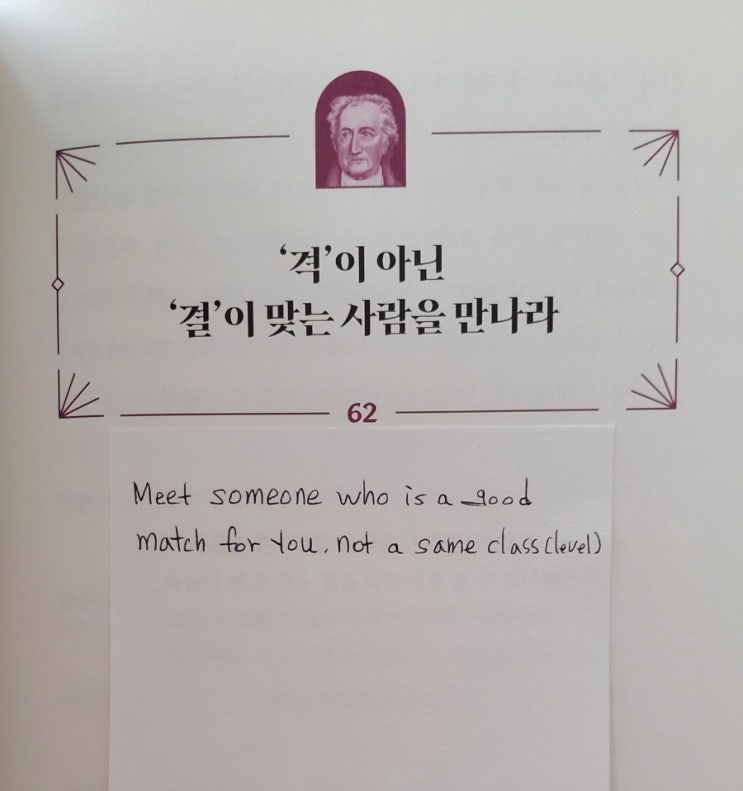 ‘격’이 아닌
‘결’이 맞는 사람을 만나라
62
Meet someone who is a good
match for you, not a same class(level)